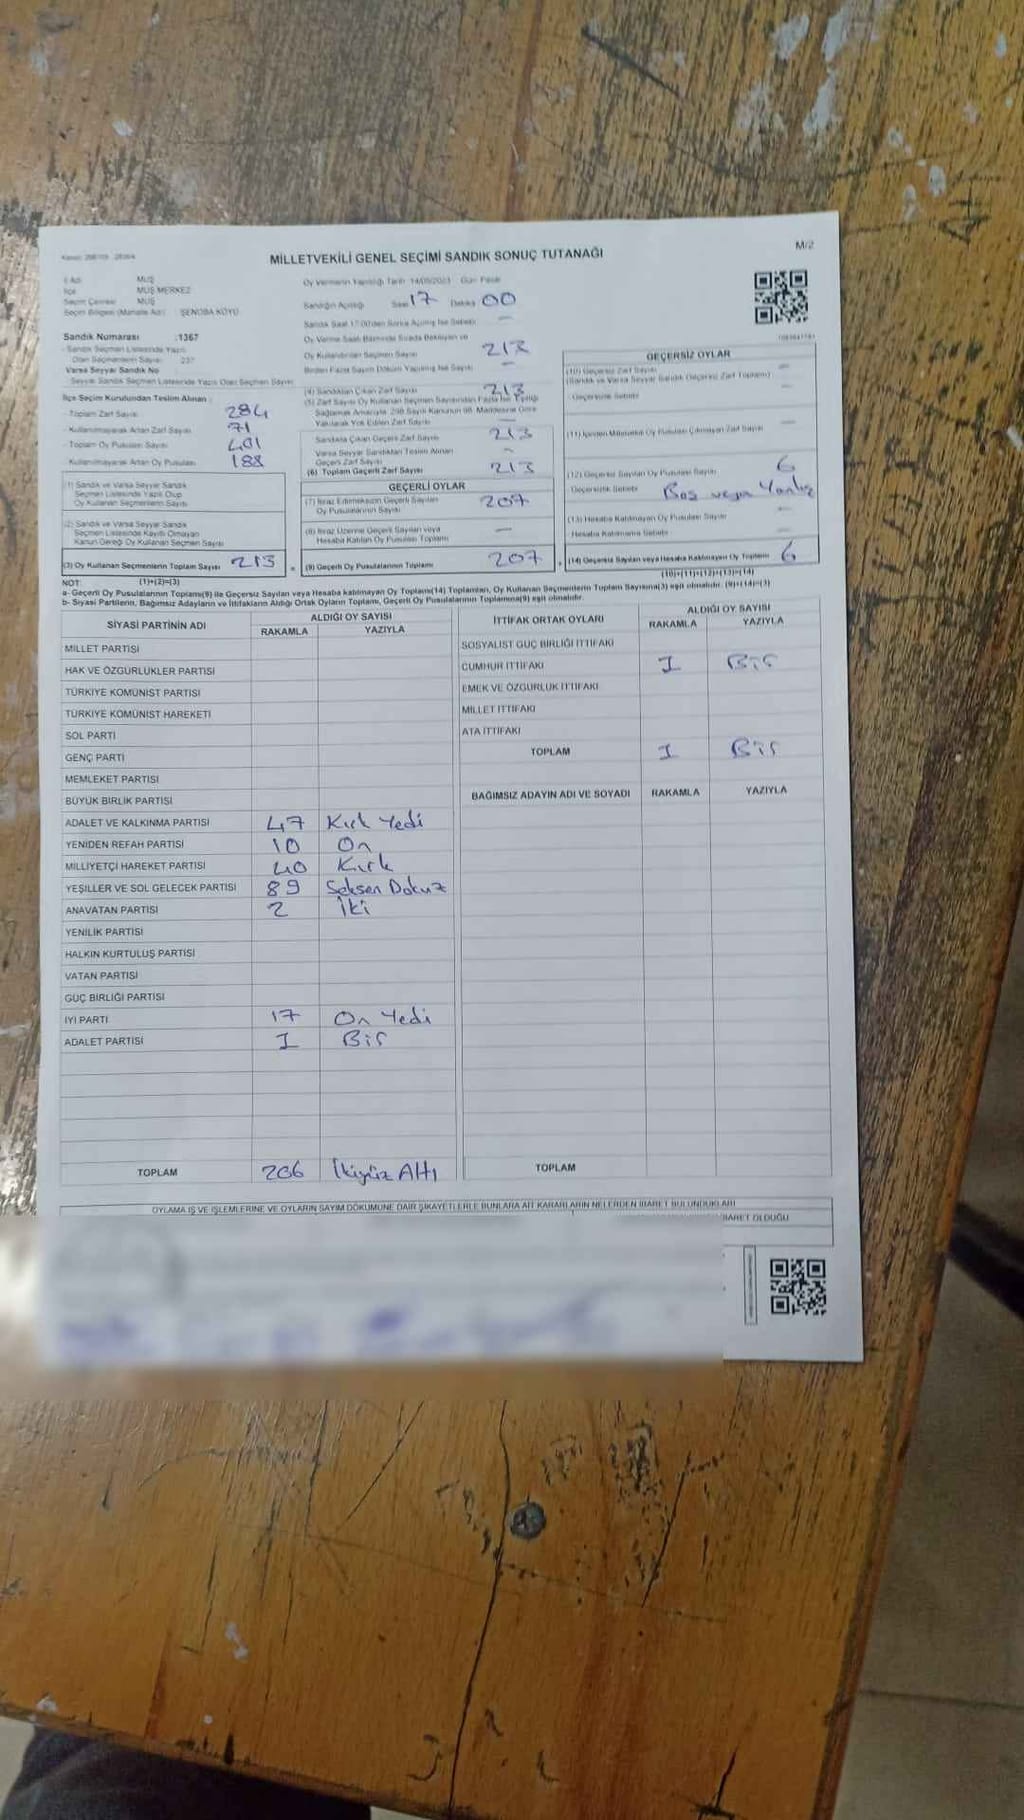 MİLLETVEKİLİ GENEL SEÇİMİ SANDIK SONUÇ TUTANAĞI
M/2
İl Adı MUŞ
İlçe MUŞ MERKEZ
Seçim Çevresi MUŞ
Seçim Bölgesi (Mahalle Adı) ŞENOBA KÖYÜ
Oy Vermenin Yapıldığı Tarih 14/05/2023 Gün Pazar
Sandığın Açıldığı Saat 17 Dakika 00
Sandık Saat 17:00'den Sonra Açılmış İse Sebebi
Sandık Numarası :1367
Sandık Seçmen Listesinde Yazılı
Olan Seçmenlerin Sayısı 237
Varsa Seyyar Sandık No
Seyyar Sandık Seçmen Listesinde Yazılı Olan Seçmen Sayısı
İlçe Seçim Kurulundan Teslim Alınan :
- Toplam Zarf Sayısı 284
- Kullanılmayarak Artan Zarf Sayısı 71
- Toplam Oy Pusulası Sayısı 401
- Kullanılmayarak Artan Oy Pusulası 188
(1) Sandık ve Varsa Seyyar Sandık
Seçmen Listesinde Yazılı Olup
Oy Kullanan Seçmenlerin Sayısı
(2) Sandık ve Varsa Seyyar Sandık
Seçmen Listesinde Kayıtlı Olmayan
Kanun Gereği Oy Kullanan Seçmen Sayısı
(3) Oy Kullanan Seçmenlerin Toplam Sayısı 213
(1)+(2)=(3)
Oy Kullandırılan Seçmen Sayısı 213
Birden Fazla Sayım Döküm Yapılmış İse Sayısı
(4) Sandıktan Çıkan Zarf Sayısı 213
(5) Zarf Sayısı Oy Kullanan Seçmen Sayısından Fazla İse, Eşitliği
Sağlamak Amacıyla 298 Sayılı Kanunun 98. Maddesine Göre
Yakılarak Yok Edilen Zarf Sayısı
Sandıkta Çıkan Geçerli Zarf Sayısı 213
Varsa Seyyar Sandıktan Teslim Alınan
Geçerli Zarf Sayısı
(6) Toplam Geçerli Zarf Sayısı 213
GEÇERLİ OYLAR
(7) İtiraz Edilmeksizin Geçerli Sayılan
Oy Pusulalarının Sayısı 207
(8) İtiraz Üzerine Geçerli Sayılan veya
Hesaba Katılan Oy Pusulası Toplamı
(9) Geçerli Oy Pusulalarının Toplamı 207
GEÇERSİZ OYLAR
(10) Geçersiz Zarf Sayısı
(Sandık ve Varsa Seyyar Sandık Geçersiz Zarf Toplamı)
Geçersizlik Sebebi
(11) İçinden Milletvekili Oy Pusulası Çıkmayan Zarf Sayısı
(12) Geçersiz Sayılan Oy Pusulası Sayısı 6
Geçersizlik Sebebi Boş veya Yanlış
(13) Hesaba Katılmayan Oy Pusulası Sayısı
Hesaba Katılmama Sebebi
(14) Geçersiz Sayılan veya Hesaba Katılmayan Oy Toplamı 6
(10)+(11)+(12)+(13)=(14)
NOT:
a- Geçerli Oy Pusulalarının Toplamı(9) ile Geçersiz Sayılan veya Hesaba katılmayan Oy Toplamı(14) Toplamları, Oy Kullanan Seçmenlerin Toplam Sayısına(3) eşit olmalıdır. (9)+(14)=(3)
b- Siyasi Partilerin, Bağımsız Adayların ve İttifakların Aldığı Ortak Oyların Toplamı, Geçerli Oy Pusulalarının Toplamına(9) eşit olmalıdır.
SİYASİ PARTİNİN ADI ALDIĞI OY SAYISI
RAKAMLA YAZIYLA
MİLLET PARTİSİ
HAK VE ÖZGÜRLÜKLER PARTİSİ
TÜRKİYE KOMÜNİST PARTİSİ
TÜRKİYE KOMÜNİST HAREKETİ
SOL PARTİ
GENÇ PARTİ
MEMLEKET PARTİSİ
BÜYÜK BİRLİK PARTİSİ
ADALET VE KALKINMA PARTİSİ 47 Kırk Yedi
YENİDEN REFAH PARTİSİ 10 On
MİLLİYETÇİ HAREKET PARTİSİ 40 Kırk
YEŞİLLER VE SOL GELECEK PARTİSİ 89 Seksen Dokuz
ANAVATAN PARTİSİ 2 İki
YENİLİK PARTİSİ
HALKIN KURTULUŞ PARTİSİ
VATAN PARTİSİ
GÜÇ BİRLİĞİ PARTİSİ
İYİ PARTİ 17 On Yedi
ADALET PARTİSİ 1 Bir
TOPLAM 206 İkiyüz Altı
İTTİFAK ORTAK OYLARI ALDIĞI OY SAYISI
RAKAMLA YAZIYLA
SOSYALİST GÜÇ BİRLİĞİ İTTİFAKI
CUMHUR İTTİFAKI 1 Bir
EMEK VE ÖZGÜRLÜK İTTİFAKI
MİLLET İTTİFAKI
ATA İTTİFAKI
TOPLAM 1 Bir
BAĞIMSIZ ADAYIN ADI VE SOYADI RAKAMLA YAZIYLA
TOPLAM
OYLAMA İŞ VE İŞLEMLERİNE VE OYLARIN SAYIM DÖKÜMÜNE DAİR ŞİKAYETLERLE BUNLARA AİT KARARLARIN NELERDEN İBARET BULUNDUKLARI
İBARET OLDUĞU